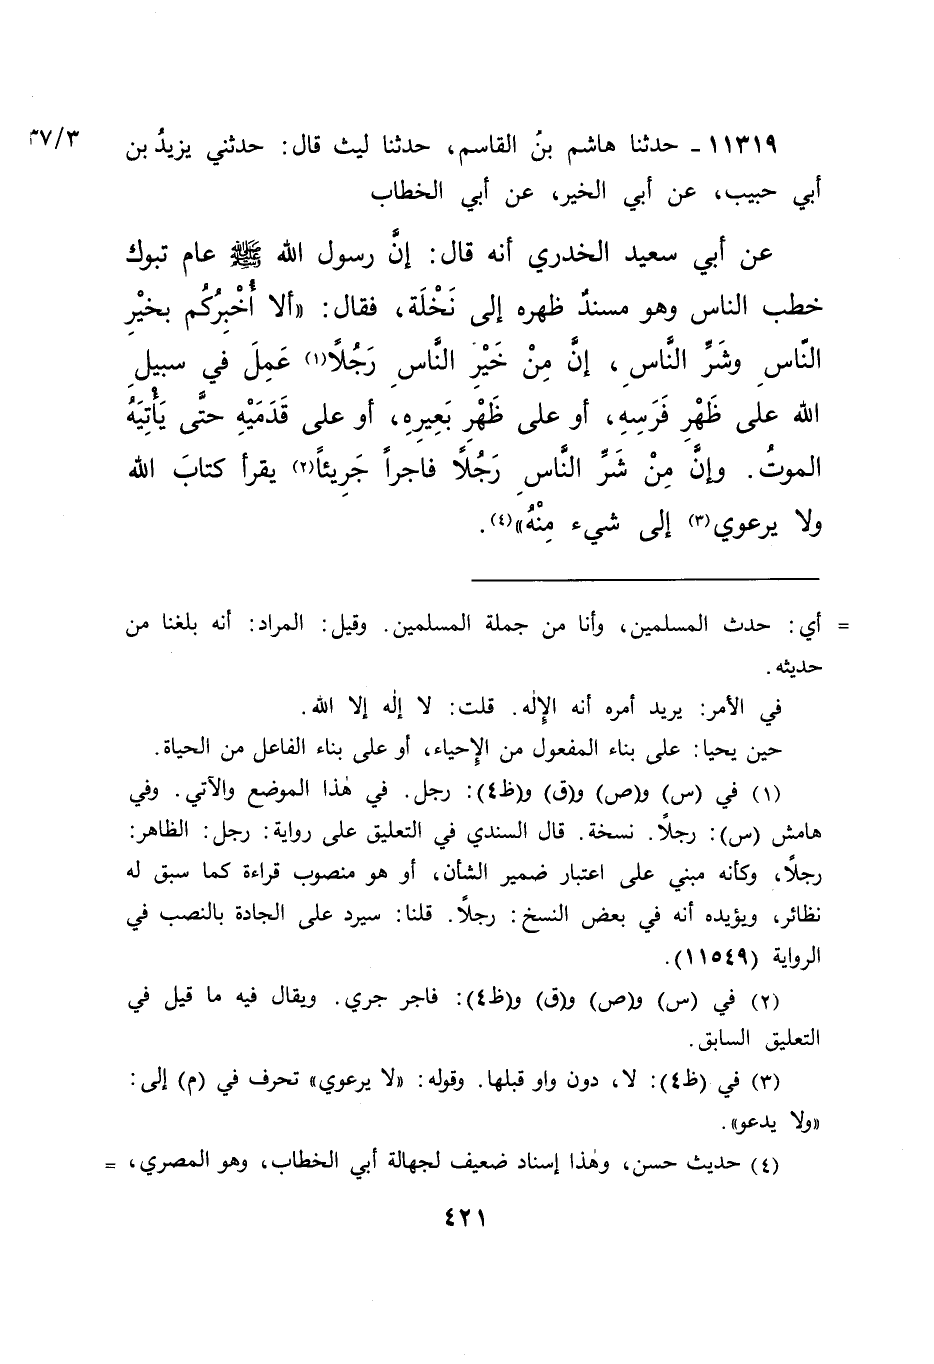 ٣٧/٣
١١٣١٩ - حدثنا هاشم بنُ القاسم، حدثنا ليث قال: حدثني يزيدُ بن
أبي حبيب، عن أبي الخير، عن أبي الخطاب
عن أبي سعيد الخدري أنه قال: إنَّ رسول الله ﷺ عام تبوك
خطب الناس وهو مسندٌ ظهره إلى نَخْلَة، فقال: «ألا أُخْبِرُكُم بخيْرِ
النَّاسِ وشَرِّ النَّاسِ، إنَّ مِنْ خَيْرِ النَّاسِ رَجُلاً(١) عَمِلَ في سبيلِ
الله على ظَهْرِ فَرَسِهِ، أو على ظَهْرِ بَعِيرِهِ، أو على قَدَمَيْهِ حتَّى يَأْتِيَهُ
الموتُ. وإنَّ مِنْ شَرِّ النَّاسِ رَجُلًا فاجراً جَرِيئاً(٢) يقرأ كتابَ الله
ولا يرعوي(٣) إلى شيء مِنْهُ»(٤).
= أي: حدث المسلمين، وأنا من جملة المسلمين. وقيل: المراد: أنه بلغنا من
حديثه.
في الأمر: يريد أمره أنه الإله. قلت: لا إله إلا الله.
حين يحيا: على بناء المفعول من الإحياء، أو على بناء الفاعل من الحياة.
(١) في (س) و(ص) و(ق) و(ظ٤): رجل. في هذا الموضع والآتي. وفي
هامش (س): رجلاً. نسخة. قال السندي في التعليق على رواية: رجل: الظاهر:
رجلاً، وكأنه مبني على اعتبار ضمير الشأن، أو هو منصوب قراءة كما سبق له
نظائر، ويؤيده أنه في بعض النسخ: رجلاً. قلنا: سيرد على الجادة بالنصب في
الرواية (١١٥٤٩).
(٢) في (س) و(ص) و(ق) و(ظ٤): فاجر جري. ويقال فيه ما قيل في
التعليق السابق.
(٣) في (ظ٤): لا، دون واو قبلها. وقوله: «لا يرعوي» تحرف في (م) إلى:
«ولا يدعو».
(٤) حديث حسن، وهذا إسناد ضعيف لجهالة أبي الخطاب، وهو المصري، =
٤٢١